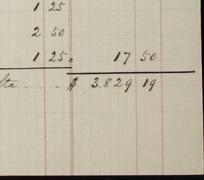 1 25
2 50
1 25. 17 50
lta . . . . $ 3.829 19